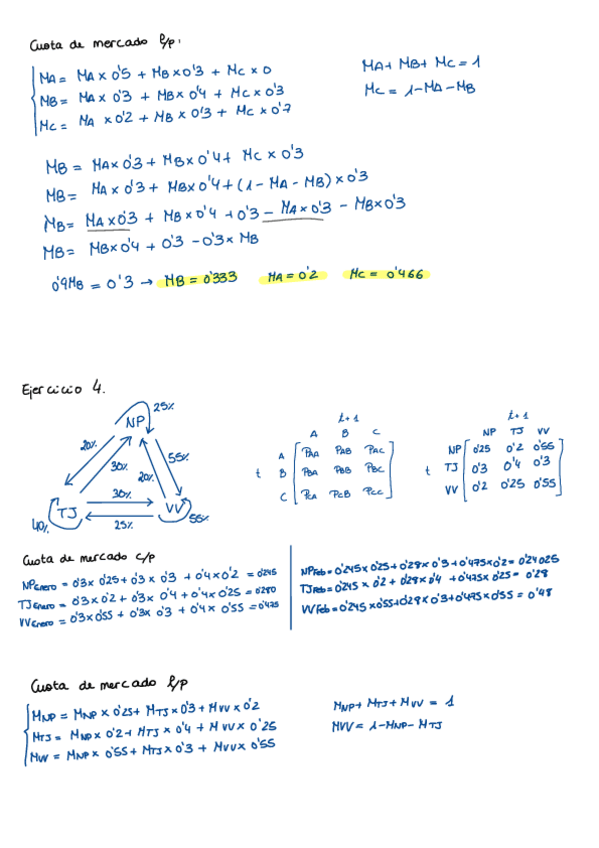 Cuota de mercado l/p:
MA = MA x 0'5 + MB x 0'3 + Mc x 0
MB = MA x 0'3 + MB x 0'4 + Mc x 0'3
Mc = MA x 0'2 + MB x 0'3 + Mc x 0'7
MA + MB + Mc = 1
Mc = 1 - MA - MB
MB = MA x 0'3 + MB x 0'4 + Mc x 0'3
MB = MA x 0'3 + MB x 0'4 + (1 - MA - MB) x 0'3
MB = MA x 0'3 + MB x 0'4 + 0'3 - MA x 0'3 - MB x 0'3
MB = MB x 0'4 + 0'3 - 0'3 x MB
0'9MB = 0'3 → MB = 0'333 MA = 0'2 Mc = 0'466
Ejercicio 4.
NP 25%
20% 30% 55% 20%
TJ 30% VV
40% 25% 55%
t+1
A B C
A PAA PAB PAC
t B PBA PBB PBC
C PCA PCB PCC
t+1
NP TJ VV
NP 0'25 0'2 0'55
t TJ 0'3 0'4 0'3
VV 0'2 0'25 0'55
Cuota de mercado c/p
NPEnero = 0'3 x 0'25 + 0'3 x 0'3 + 0'4 x 0'2 = 0'245
TJEnero = 0'3 x 0'2 + 0'3 x 0'4 + 0'4 x 0'25 = 0'280
VVEnero = 0'3 x 0'55 + 0'3 x 0'3 + 0'4 x 0'55 = 0'475
NPFeb = 0'245 x 0'25 + 0'28 x 0'3 + 0'475 x 0'2 = 0'24025
TJFeb = 0'245 x 0'2 + 0'28 x 0'4 + 0'475 x 0'25 = 0'28
VVFeb = 0'245 x 0'55 + 0'28 x 0'3 + 0'475 x 0'55 = 0'48
Cuota de mercado l/p
MNP = MNP x 0'25 + MTJ x 0'3 + MVV x 0'2
MTJ = MNP x 0'2 + MTJ x 0'4 + MVV x 0'25
MVV = MNP x 0'55 + MTJ x 0'3 + MVV x 0'55
MNP + MTJ + MVV = 1
MVV = 1 - MNP - MTJ